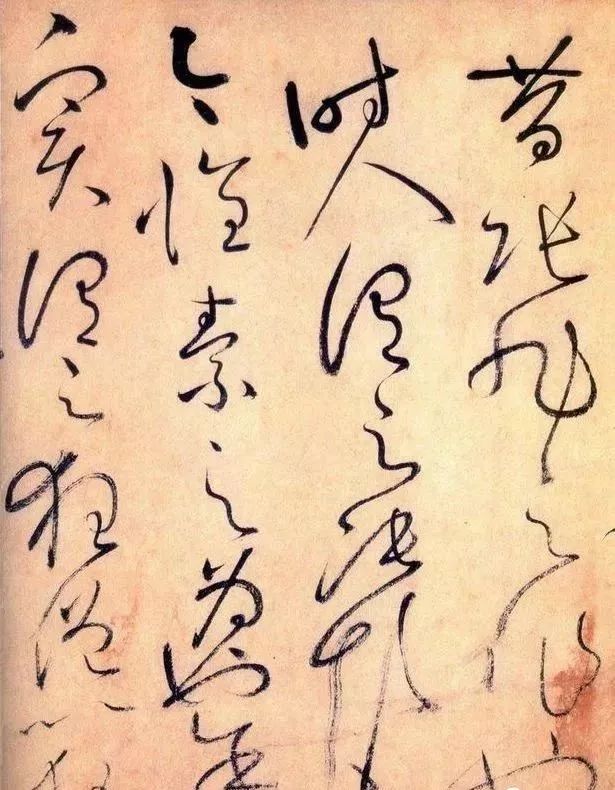 昔張旭之作也
時人謂之張顛
今懷素之為也余
實謂之狂僧以狂